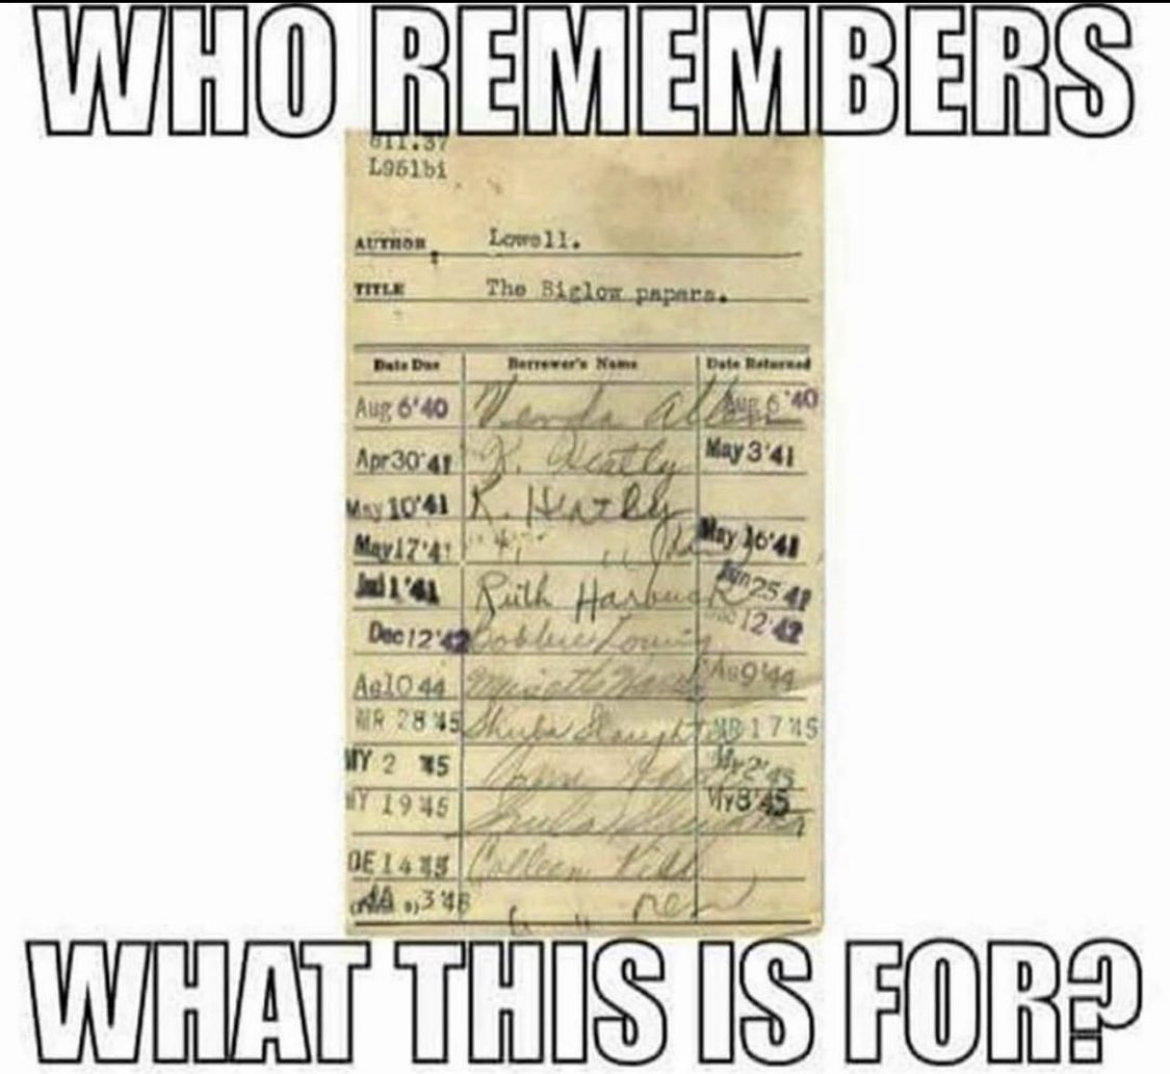 WHO REMEMBERS
811.37
L951bi
AUTHOR Lowell.
TITLE The Biglow papers.
Date Due Borrower's Name Date Returned
Aug 6'40 Allen Aug 6'40
Apr30'41 K. Heatly May 3'41
May 10'41 K. Heatly
May 17'41 " " May 16'41
Jul 1'41 Ruth Harbuck Jun 25 41
Dec 12'42 Bobbie 12'42
Ag10 44 Ag 9'44
MR 28 '45 Slaughter MR 17 '45
MY 2 '45 My 2'45
MY 19 '45 My 8'45
DE 14 '45 Colleen
JA 3'46 " ren
WHAT THIS IS FOR?